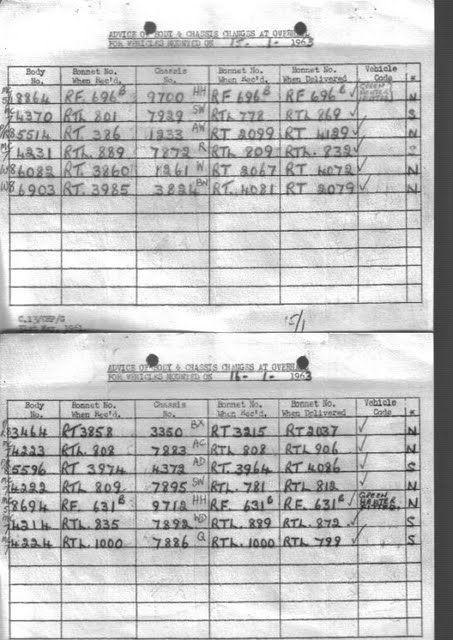 ADVICE OF BODY & CHASSIS CHANGES AT OVERHAUL
FOR VEHICLES MOUNTED ON 15 - 1 - 1963
Body No. Bonnet No. When Rec'd. Chassis No. Bonnet No. When Rec'd. Bonnet No. When Delivered Vehicle Code *
8864 RF 696B 9700 HH RF 696B RF 696B ✓ GREEN N
4370 RTL 801 7929 SW RTL 778 RTL 869 ✓ S
5514 RT 386 1233 AW RT 2099 RT 4129 ✓ N
4231 RTL. 889 7872 R RTL 809 RTL. 832 ✓
6082 RT. 3860 1261 W RT 2067 RT. 4072 ✓ N
6903 RT. 3985 3824 BN RT. 4081 RT 2079 ✓ N
C.13/OHP/G
15/1
ADVICE OF BODY & CHASSIS CHANGES AT
FOR VEHICLES MOUNTED ON 16 - 1 - 1963
Body No. Bonnet No. When Rec'd. Chassis No. Bonnet No. When Rec'd. Bonnet No. When Delivered Vehicle Code *
3464 RT 3858 3350 BX RT 3215 RT 2037 ✓ N
4223 RTL. 808 7883 AC RTL 808 RTL 906 ✓ N
5596 RT 3974 4372 AD RT. 3964 RT 4086 ✓ S
4222 RTL 809 7895 SW RTL. 781 RTL 812 ✓ N
8694 RF. 631B 9712 HH RF. 631B RF. 631B ✓ GREEN N
4214 RTL. 835 7892 WD RTL. 889 RTL. 872 ✓ S
4224 RTL. 1000 7886 Q RTL. 1000 RTL 799 ✓ S